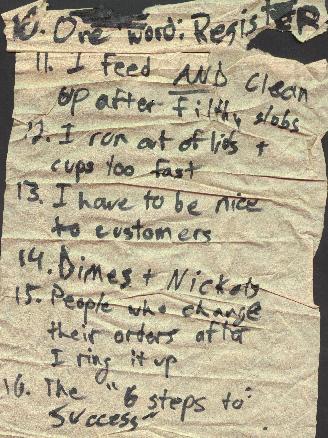 10. One word: RegistER
11. I feed AND clean
up after filthy slobs
12. I run out of lids +
cups too fast
13. I have to be nice
to customers
14. Dimes + Nickels
15. People who change
their orders after
I ring it up
16. The "6 steps to
Success"